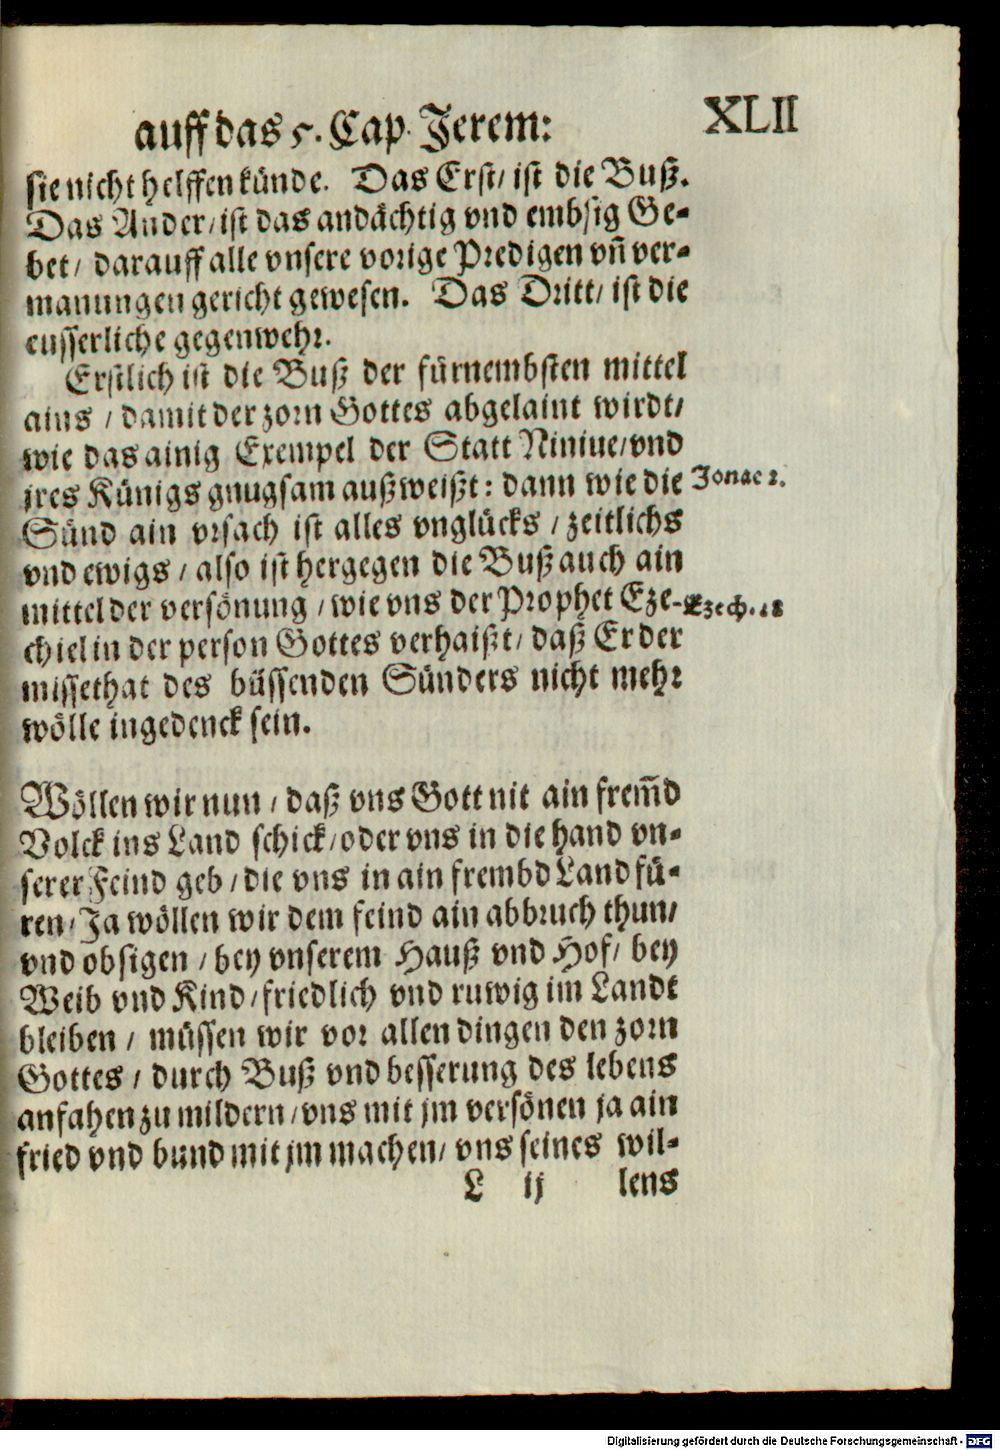 auff das 5. Cap. Jerem: XLII
sie nicht helffen künde. Das Erst/ ist die Buß.
Das Ander/ ist das andächtig vnd embsig Ge-
bet/ darauff alle vnsere vorige Predigen vn̄ ver-
manungen gericht gewesen. Das Dritt/ ist die
eusserliche gegenwehr.
Erstlich ist die Buß der fürnembsten mittel
ains / damit der zorn Gottes abgelaint wirdt/
wie das ainig Exempel der Statt Niniue/ vnd
jres Künigs gnugsam außweißt: dann wie die Jonae 2.
Sünd ain vrsach ist alles vnglücks / zeitlichs
vnd ewigs / also ist hergegen die Buß auch ain
mittel der versönung / wie vns der Prophet Eze- Ezech. 18
chiel in der person Gottes verhaißt/ daß Er der
missethat des büssenden Sünders nicht mehr
wölle ingedenck sein.
Wöllen wir nun / daß vns Gott nit ain frem̄d
Volck ins Land schick/ oder vns in die hand vn-
serer Feind geb / die vns in ain frembd Land fü-
ren/ Ja wöllen wir dem feind ain abbruch thun/
vnd obsigen / bey vnserem Hauß vnd Hof/ bey
Weib vnd Kind/ friedlich vnd ruwig im Landt
bleiben / müssen wir vor allen dingen den zorn
Gottes / durch Buß vnd besserung des lebens
anfahen zu mildern / vns mit jm versönen ja ain
fried vnd bund mit jm machen/ vns seines wil-
L ij lens
Digitalisierung gefördert durch die Deutsche Forschungsgemeinschaft - DFG